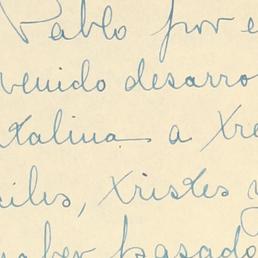 Pablo por e
venido desarro
talina a Xre
iles, Xristes y
haber pasado